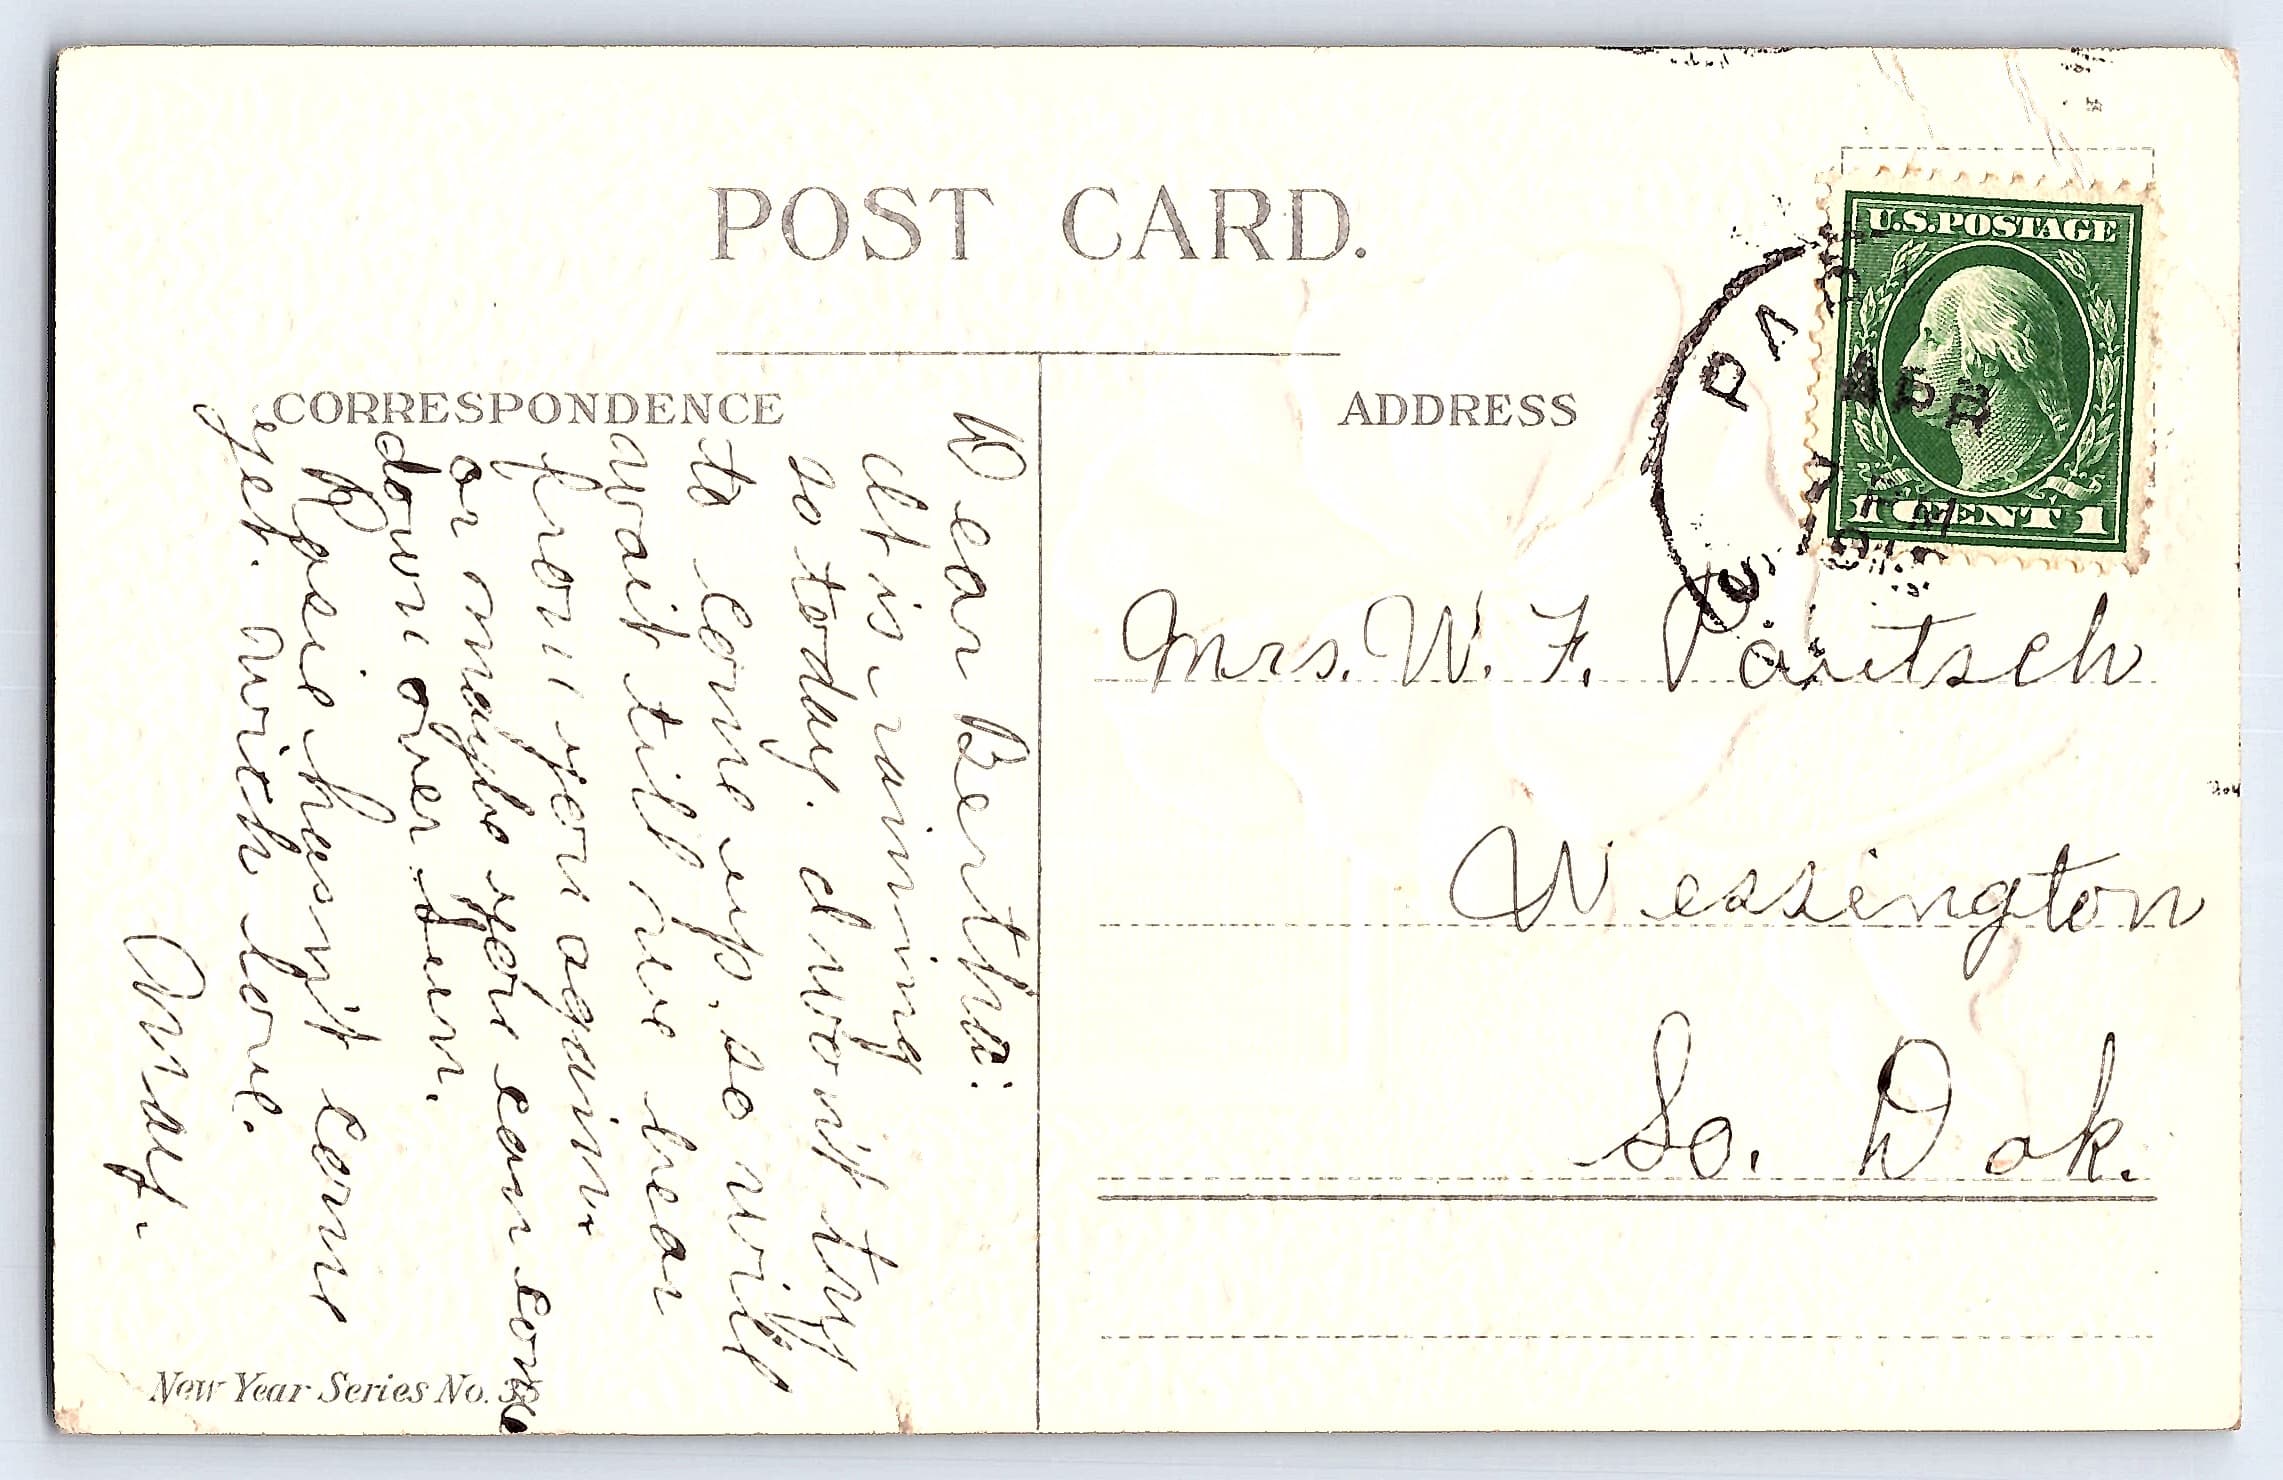 POST CARD.
CORRESPONDENCE
ADDRESS
U.S. POSTAGE
1 CENT 1
PA
APR
7
PM
Dear Bertha:
It is raining
so today. I won't try
to come up, so will
wait till we hear
from you again.
or maybe you can come
down over Sun.
Rosie hasn't come
yet. With love.
Amay.
Mrs. W. F. Paitsch
Wessington
So. Dak.
New Year Series No. 35